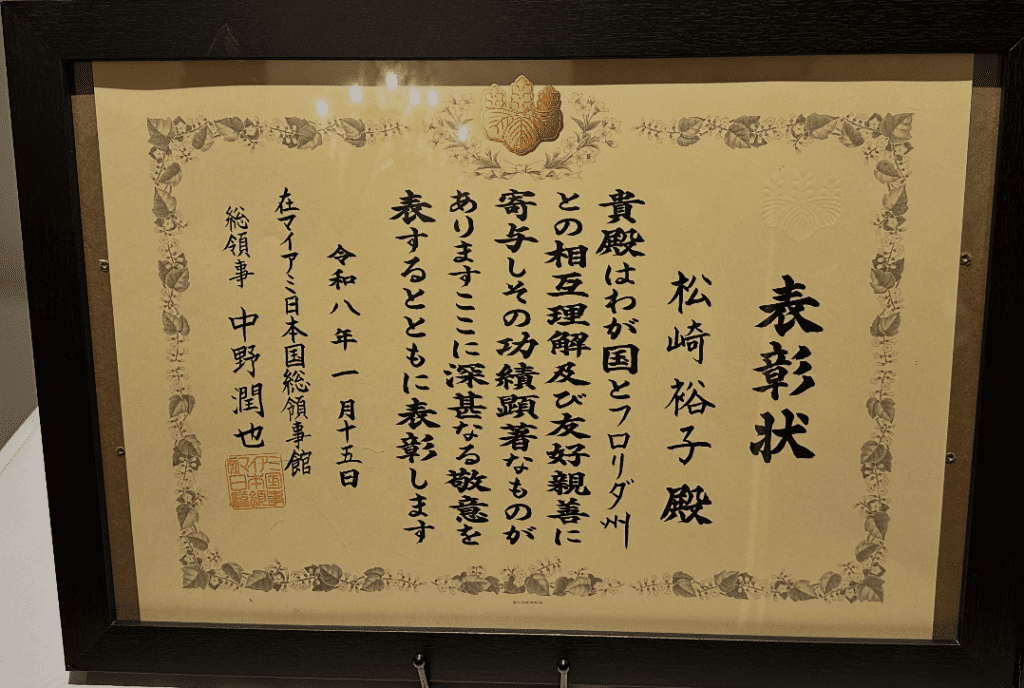 表彰状
松崎裕子殿
貴殿はわが国とフロリダ州
との相互理解及び友好親善に
寄与しその功績顕著なものが
ありますここに深甚なる敬意を
表するとともに表彰します
令和八年一月十五日
在マイアミ日本国総領事館
総領事 中野潤也